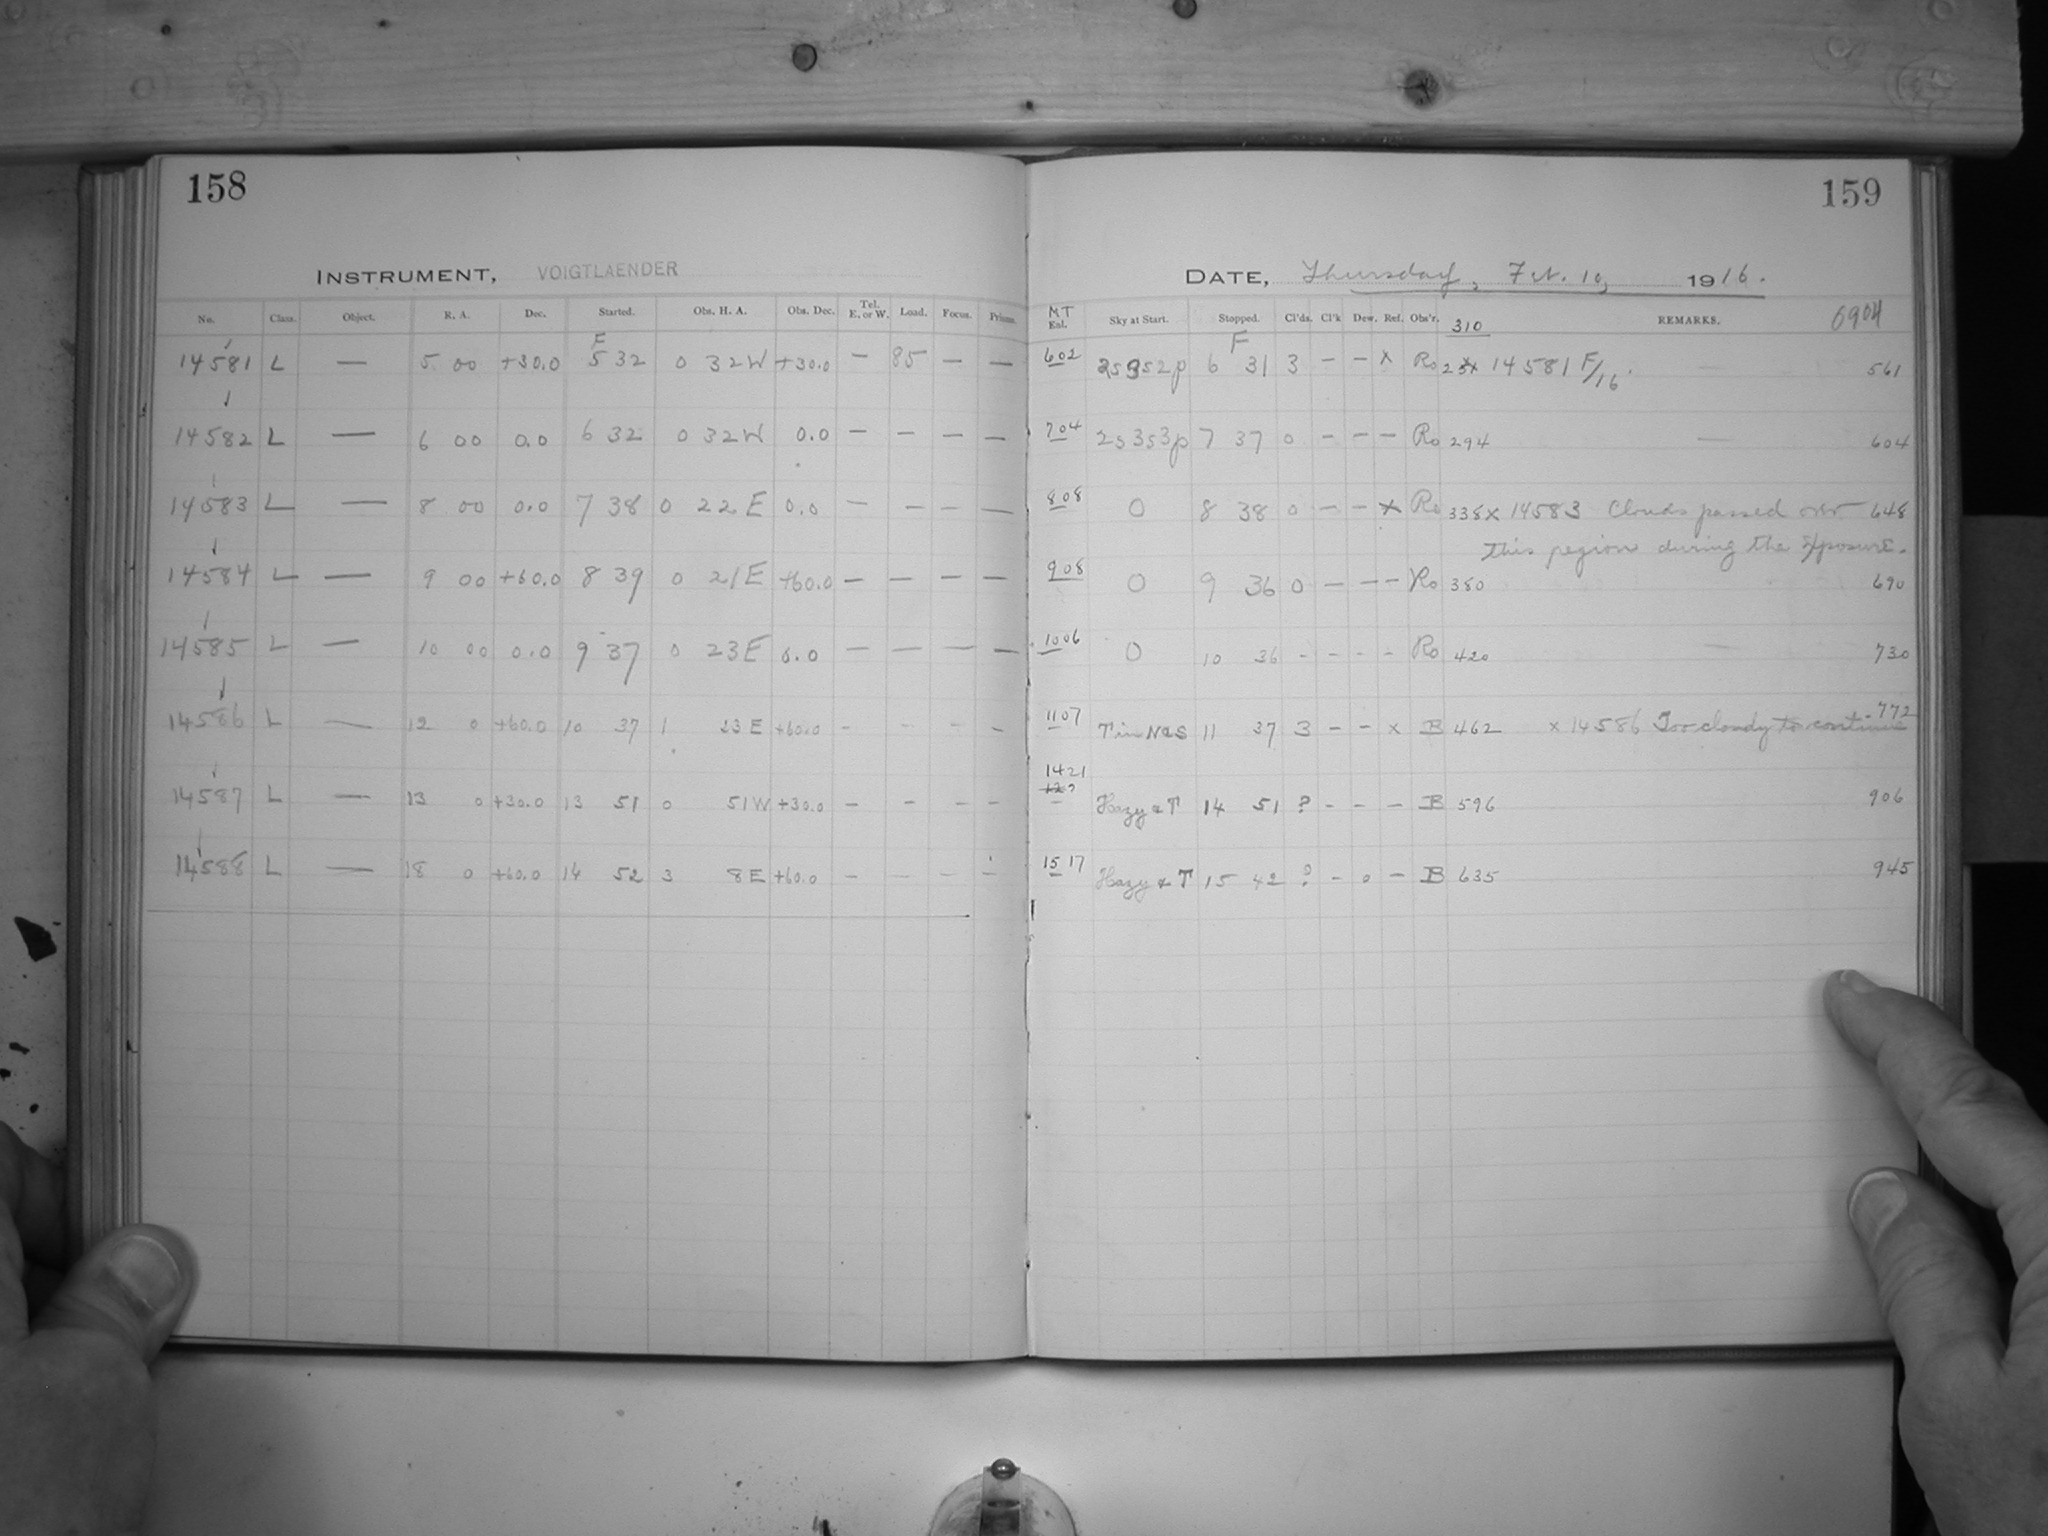 158
159
INSTRUMENT, VOIGTLAENDER
DATE, Thursday, Feb. 10, 1916.
No. Class. Object. R. A. Dec. Started. Obs. H. A. Obs. Dec. Tel. E. or W. Load. Focus. Prisms. MT Eal. Sky at Start. Stopped. Cl'ds. Cl'k Dew. Ref. Obs'r. 310 REMARKS. 6904
14581 L — 5 00 +30.0 F 5 32 0 32 W +30.0 — 85 — — 602 6 F 31 3 — — x Ro x 14581 F/16. — 561
14582 L — 6 00 0.0 6 32 0 32 W 0.0 — — — — 704 2s3s3p 7 37 0 — — — Ro 294 — 604
14583 L — 8 00 0.0 7 38 0 22 E 0.0 — — — — 808 0 8 38 0 — — x Ro 338 x 14583 Clouds passed over 648
this region during the exposure.
14584 L — 9 00 +60.0 8 39 0 21 E +60.0 — — — — 908 0 9 36 0 — — — Ro 380 690
14585 L — 10 00 0.0 9 37 0 23 E 0.0 — — — — 1006 0 10 36 - - - - Ro 420 — 730
14586 L — 12 0 +60.0 10 37 1 23 E +60.0 - - - - 1107 T in N&S 11 37 3 - - x B 462 x 14586 Too cloudy to continue 772
14587 L — 13 0 +30.0 13 51 0 51 W +30.0 - - - - 1421 Hazy & T 14 51 ? - - - B 596 906
14588 L — 18 0 +60.0 14 52 3 8 E +60.0 - - - - 1517 Hazy & T 15 42 ? - 0 - B 635 945